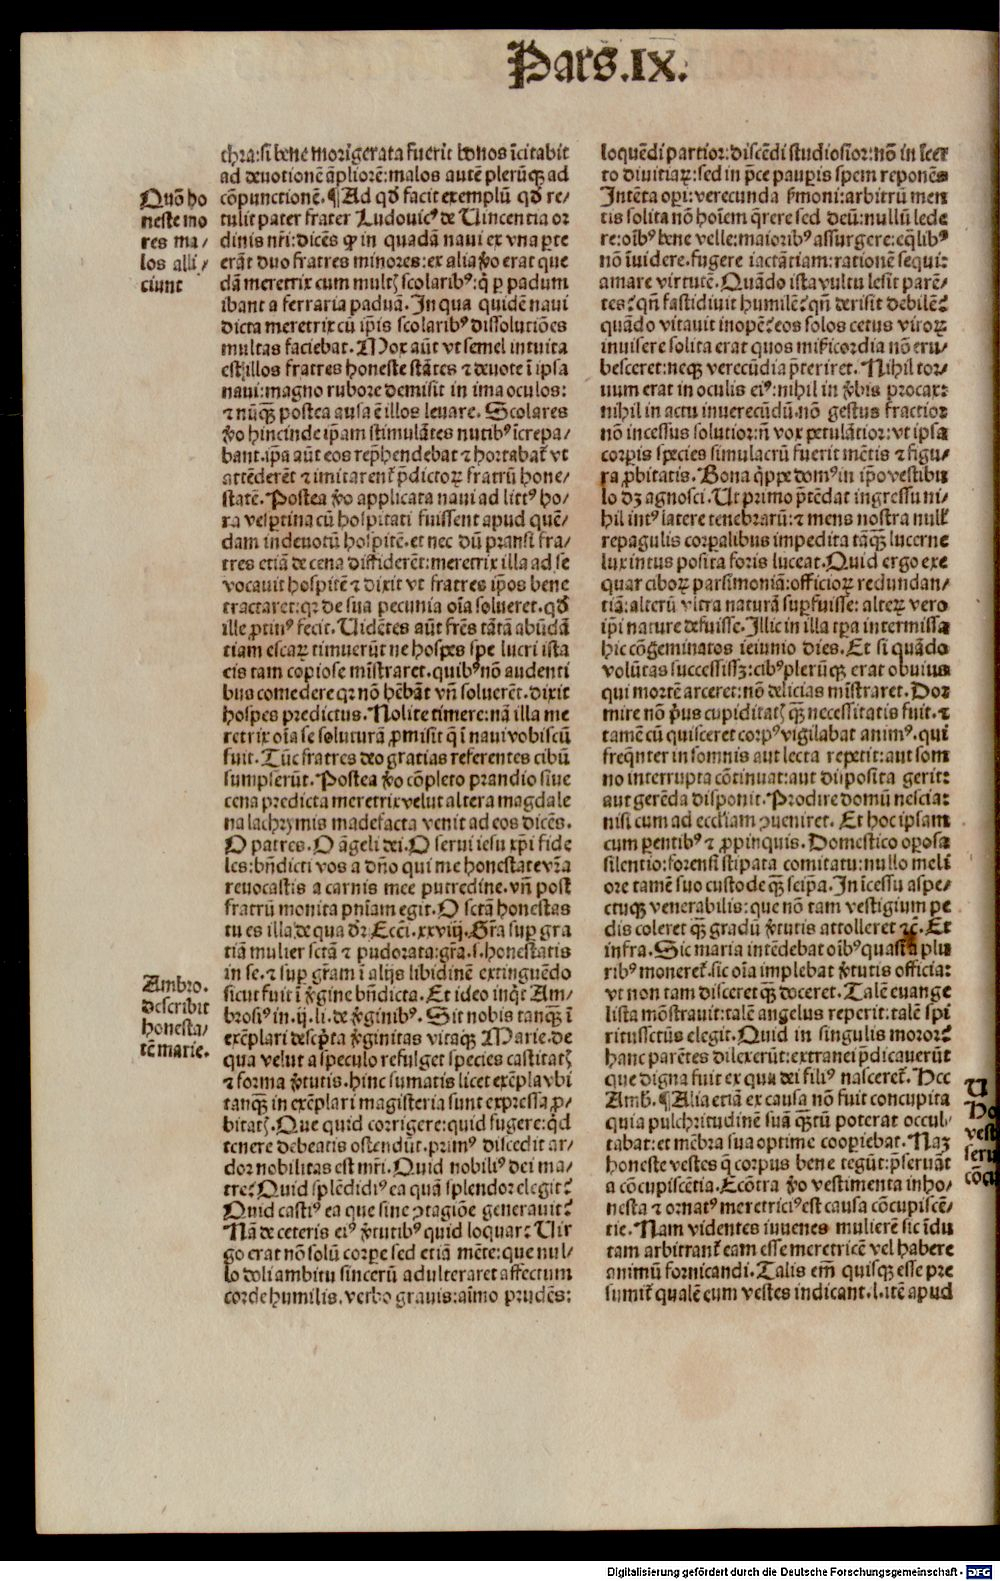 Pars.IX.
chra:si bene morigerata fuerit bonos īcitabit
ad deuotionē āpliorē:malos autē plerūqꝫ ad
cōpunctionē.¶Ad qď facit exemplū qď re⸗
tulit pater frater Ludouicꝰ de Uincentia or
dinis nr̄i:dicēs ꝙ in quadā naui ex vna ꝑte
erāt duo fratres minores:ex alia ꝟo erat que
dā meretrix cum multꝭ scolaribꝰ:q̄ ꝑ padum
ibant a ferraria paduā. In qua quidē naui
dicta meretrix cū ip̄is scolaribꝰ dissolutiōes
multas faciebat. Mox aūt vt semel intuita
est illos fratres honeste stātes ⁊ deuote ī ipsa
naui:magno rubore demisit in ima oculos:
⁊ nūqꝫ postea ausa ē illos leuare. Scolares
ꝟo hincinde ip̄am stimulātes nutibꝰ īcrepa⸗
bant.ip̄a aūt eos rep̄hendebat ⁊ hortabat᷑ vt
attēderēt ⁊ imitarent᷑ p̄dictoꝝ fratrū hone⸗
statē. Postea ꝟo applicata naui ad littꝰ ho⸗
ra vesꝑtina cū hospitati fuissent apud quē⸗
dam indeuotū hospitē.et nec dū pransi fra⸗
tres etiā de cena diffiderēt:meretrix illa ad se
vocauit hospitē ⁊ dixit vt fratres ip̄os bene
tractaret:qꝛ de sua pecunia oīa solueret.qď
ille ꝓtinꝰ fecit. Uidētes aūt fr̄es tātā abūdā
tiam escaꝝ timuerūt ne hospes spe lucri ista
eis tam copiose mīstraret.quibꝰ nō audenti
bus comedere qꝛ nō hēbāt vn̄ soluerēt.dixit
hospes predictus. Nolite timere:nā illa me
retrix oīa se soluturā ꝓmisit q̄ ī naui vobiscū
fuit. Tūc fratres deo gratias referentes cibū
sumpserūt. Postea ꝟo cōpleto prandio siue
cena predicta meretrix velut altera magdale
na lachrymis madefacta venit ad eos dicēs.
O patres. O āgeli dei. O serui iesu xp̄i fide
les:bn̄dicti vos a dn̄o qui me honestate vr̄a
reuocastis a carnis mee putredine.vn̄ post
fratrū monita pn̄iam egit. O sctā honestas
tu es illa de qua dr̄ Ecci. xxviij. Gr̄a suꝑ gra
tiā mulier sctā ⁊ pudorata:gr̄a.s.honestatis
in se.⁊ suꝑ gr̄am ī alijs libidinē extinguēdo
sicut fuit ī ꝟgine bn̄dicta. Et ideo inqͥt Am⸗
brosiꝰ in.ij.li.de ꝟginibꝰ. Sit nobis tanqꝫ ī
exēplari descp̄ta ꝟginitas vitaqꝫ Marie.de
qua velut a speculo refulget species castitatꝭ
⁊ forma ꝟtutis.hinc sumatis licet exēpla vbi
tanqꝫ in exēplari magisteria sunt expressa ꝓ⸗
bitatꝭ. Que quid corrigere:quid fugere:qď
tenere debeatis ostendūt.primꝰ discedit ar⸗
dor nobilitas est mr̄i. Quid nobiliꝰ dei ma⸗
tre? Quid splēdidiꝰ ea quā splendor elegit?
Quid castiꝰ ea que sine ꝯtagiōe generauit?
Nā de ceteris eiꝰ ꝟtutibꝰ quid loquar? Uir
go erat nō solū corꝑe sed etiā mēte:que nul⸗
lo doli ambitu sincerū adulteraret affectum
corde humilis.verbo grauis:aīmo prudēs:
Quō ho
neste mo
res ma⸗
los alli⸗
ciunt
Ambro.
describit
honesta⸗
tē marie.
loquēdi partior:discēdi studiosior:nō in īcer
to diuitiaꝝ:sed in p̄ce pauꝑis spem reponēs
Intēta oꝑi:verecunda ẜmoni:arbitrū men
tis solita nō hoīem q̄rere sed deū:nullū lede
re:oībꝰ bene velle:maioribꝰ assurgere:eq̄libꝰ
nō īuidere.fugere iactātiam:rationē sequi:
amare virtutē. Quādo ista vultu lesit parē⸗
tes? qn̄ fastidiuit humilē? qn̄ derisit debilē?
quādo vitauit inopē? eos solos cetus viroꝝ
inuisere solita erat quos mīẜicordia nō eru⸗
besceret:neqꝫ verecūdia p̄teriret. Nihil tor⸗
uum erat in oculis eiꝰ:nihil in ꝟbis procax:
nihil in actu inuerecūdū.nō gestus fractior
nō incessus solutior:n̄ vox petulātior:vt ipsa
corꝑis species simulacrū fuerit mētis ⁊ figu⸗
ra ꝓbitatis. Bona q̄ppe domꝰ in ip̄o vestibu
lo dꝫ agnosci. Ut primo p̄tēdat ingressu ni⸗
hil intꝰ latere tenebrarū:⁊ mens nostra null᷑
repagulis corꝑalibus impedita tāqꝫ lucerne
lux intus posita foris luceat. Quid ergo exe
quar ciboꝝ parsimoniā:officioꝝ redundan⸗
tiā:alterū vltra naturā suꝑfuisse:alteꝝ vero
ip̄i nature defuisse. Illic in illa tꝑa intermissa
hic cōgeminatos ieiunio dies. Et si quādo
volūtas successissꝫ:cibꝰ plerūqꝫ erat obuius
qui mortē arceret:nō delicias mīstraret. Dor
mire nō pͥus cupiditatꝭ qꝫ necessitatis fuit.⁊
tamē cū quisceret corpꝰ vigilabat animꝰ.qui
freq̄nter in somnis aut lecta repetit:aut som
no interrupta cōtinuat:aut disposita gerit:
aut gerēda disponit. Prodire domū nescia:
nisi cum ad eccl̄iam ꝯueniret. Et hoc ipsam
cum ꝑentibꝰ ⁊ ꝓpinquis. Domestico oꝑosa
silentio:forensi stipata comitatu:nullo meli
ore tamē suo custode qꝫ seip̄a. In īcessu aspe⸗
ctuqꝫ venerabilis:que nō tam vestigium pe
dis coleret qꝫ gradū ꝟtutis attolleret ⁊c̄. Et
infra. Sic maria intēdebat oībꝰ quasi a plu
ribꝰ moneret᷑.sic oīa implebat ꝟtutis officia:
vt non tam disceret qꝫ doceret. Talē euange
lista mōstrauit:talē angelus reperit:talē spī
ritussctūs elegit. Quid in singulis moror?
hanc parētes dilexerūt:extranei p̄dicauerūt
que digna fuit ex qua dei filiꝰ nasceret᷑. Hec
Amb̄.¶Alia etiā ex causa nō fuit concupita
quia pulchritudinē suā qꝫtū poterat occul⸗
tabat:et mēbra sua optime cooꝑiebat. Naꝫ
honeste vestes q̄ corpus bene tegūt:p̄seruāt
a cōcupiscētia. Ecōtra ꝟo vestimenta inho⸗
nesta ⁊ ornatꝰ meretriciꝰ est causa cōcupiscē⸗
tie. Nam videntes iuuenes mulierē sic īdu
tam arbitrant᷑ eam esse meretricē vel habere
animū fornicandi. Talis em̄ quisqꝫ esse pre
sumit᷑ qualē eum vestes indicant.l.itē apud
U
Ho
vest
seru
cōcu
Digitalisierung gefördert durch die Deutsche Forschungsgemeinschaft - DFG